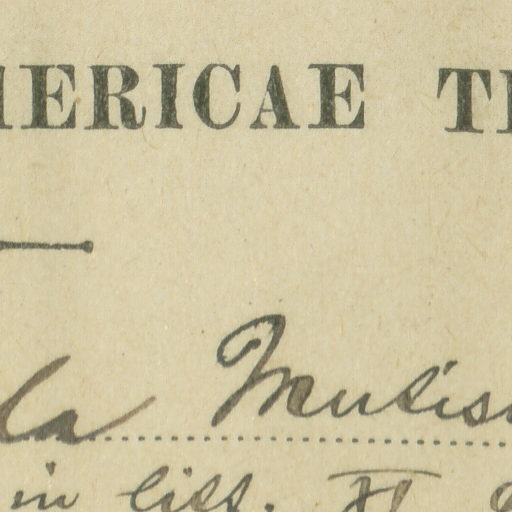 MERICAE T
la Mutis
in litt.